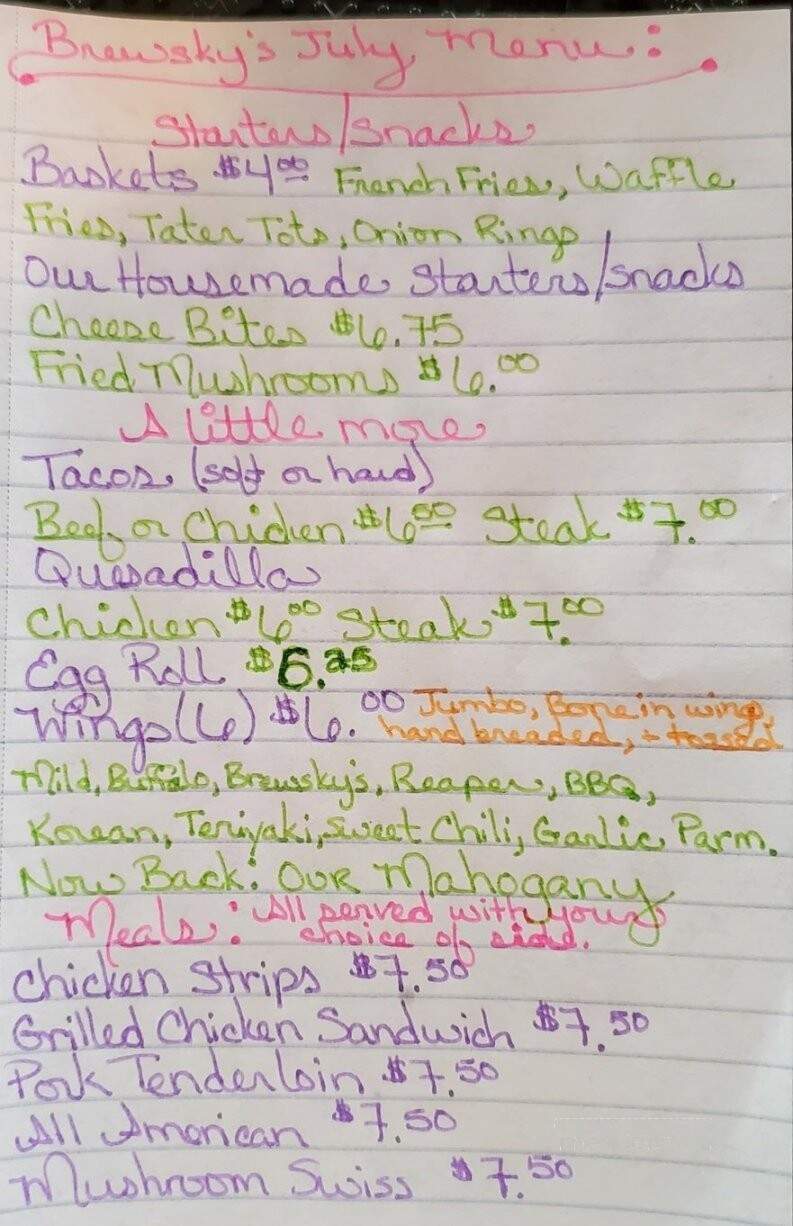 Brewsky's July Menu:
Starters/Snacks
Baskets $4.00 French Fries, Waffle
Fries, Tater Tots, Onion Rings
Our Housemade Starters/Snacks
Cheese Bites $6.75
Fried Mushrooms $6.00
A little more
Tacos (soft or hard)
Beef or Chicken $6.00 Steak $7.00
Quesadilla
Chicken $6.00 Steak $7.00
Egg Roll $6.25
Wings (6) $6.00 Jumbo, Bone in wing,
hand breaded, + tossed
Mild, Buffalo, Brewsky's, Reaper, BBQ,
Korean, Teriyaki, Sweet Chili, Garlic Parm.
Now Back! OUR Mahogany
Meals: All served with your
choice of side.
Chicken Strips $7.50
Grilled Chicken Sandwich $7.50
Pork Tenderloin $7.50
All American $7.50
Mushroom Swiss $7.50